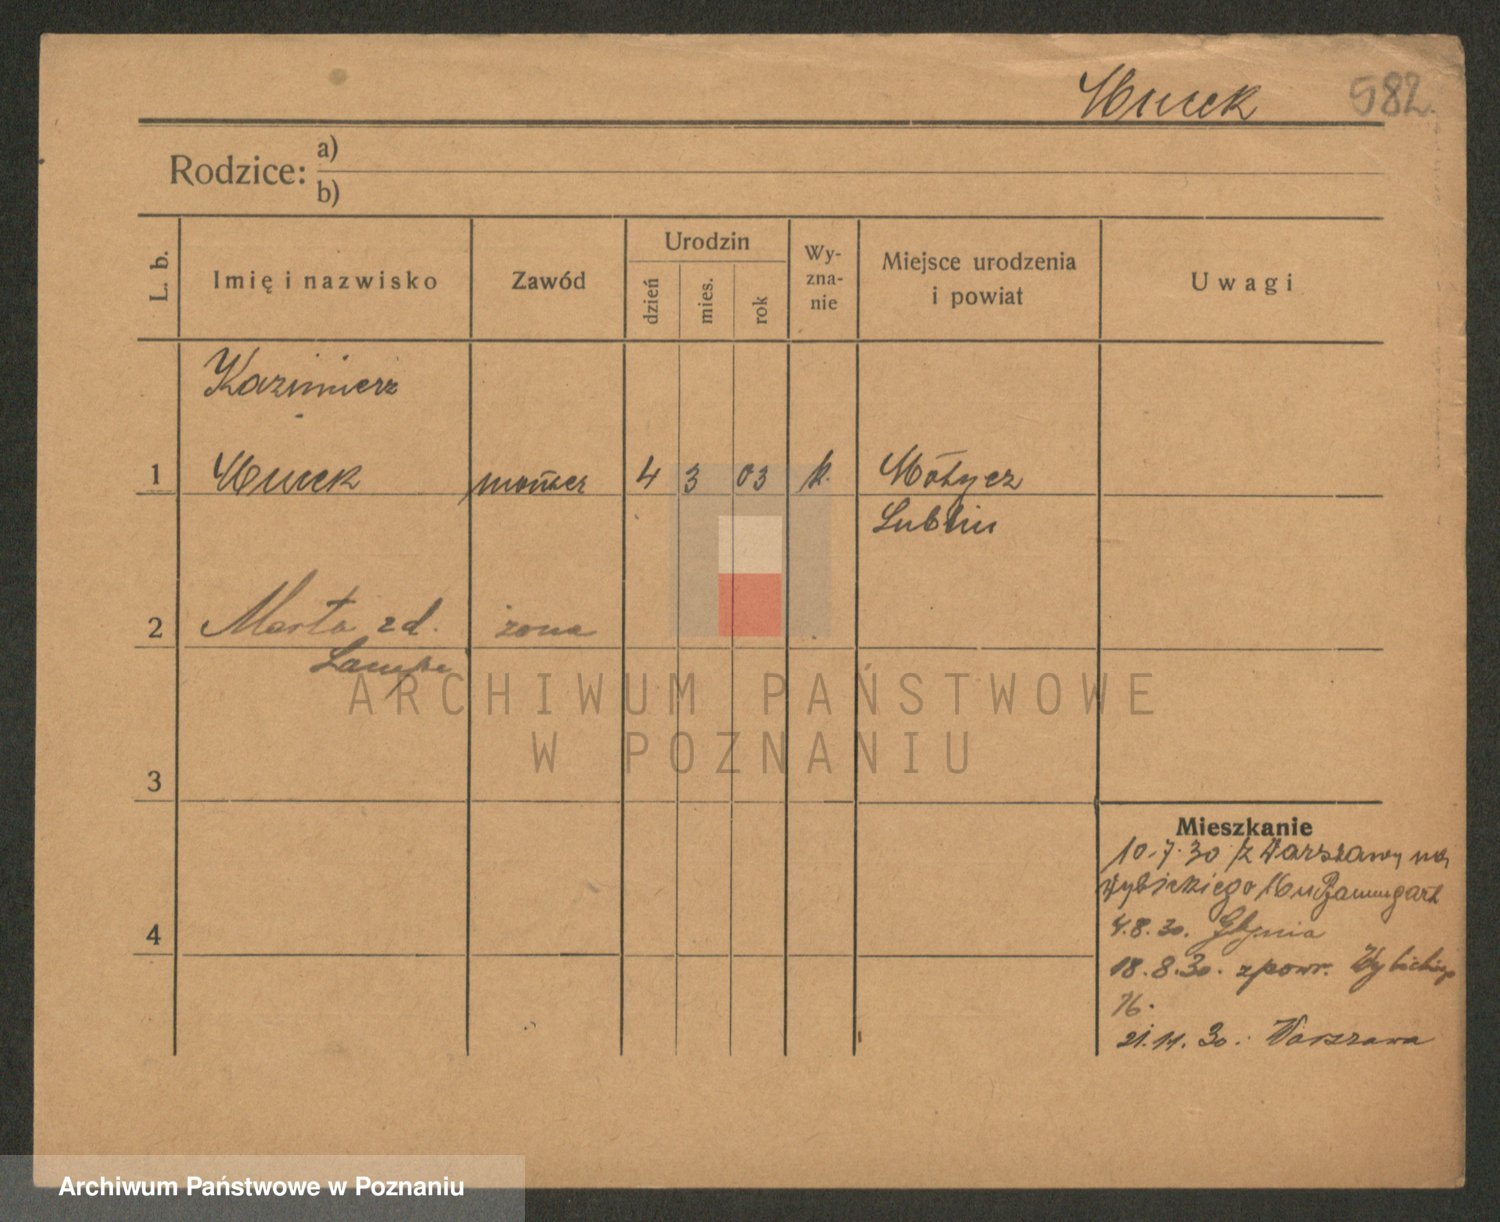 582
Rodzice:
a)
b)
L. b.
Imię i nazwisko
Zawód
Urodzin
dzień
mies.
rok
Wy-
zna-
nie
Miejsce urodzenia
i powiat
Uwagi
Kazimierz
1 4 3 03 k.
Lublin
2 Marta zd. żona
3
4
Mieszkanie
10.7.30 z Warszawy na
Wybickiego
4.8.30. Gdynia
18.8.30. zpowr. Wybickiego
16.
21.11.30. Warszawa
ARCHIWUM PAŃSTWOWE
W POZNANIU
Archiwum Państwowe w Poznaniu